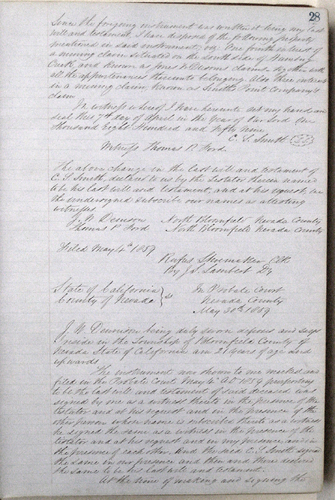 28
Since the forgoing instrument was written it being my last
will and testament I have disposed of the following property
mentioned in said instrument, viz: One fourth interest of
a mining claim situated on the south side of
Creek and known as Dennison claims together with
all the appurtenances thereunto belonging. Also three
in a mining claim known as Smiths Point Company's
claim
In witness whereof I have hereunto set my hand and
seal this 7th day of April in the year of our Lord one
thousand Eight Hundred and fifty nine
C. S. Smith
Witness Thomas P. Ford
The above change in the last will and testament of
C. S. Smith, declared to us by the Testator therein named
to be his last will and testament, and at his request, we
the undersigned subscribe our names as attesting
witnesses
J. W. Dennison North Bloomfield Nevada County
Thomas P. Ford North Bloomfield Nevada County
Filed May 4th 1859
Rufus Shoemaker Clk
By J. S. Lambert Dy
State of California } ss In Probate Court
County of Nevada Nevada County
May 30th 1859
J. W. Dennison being duly sworn deposes and says
I reside in the Township of Bloomfield County of
Nevada State of California am 21 years of age and
upwards
The instrument now shown to me marked as
filed in the Probate Court May 4th AD 1859 purporting
to be the last will and testament of said deceased was
signed by me as a witness thereto in the presence of the
testator and at his request and in the presence of the
other person whose name is subscribed thereto as a witness
he signed the same as a witness in the presence of the
testator and at his request and in my presence and in
the presence of each other. And the said C. S. Smith signed
the same in our presence and then and there declared
the same to be his last will and testament.
At the time of making and signing the